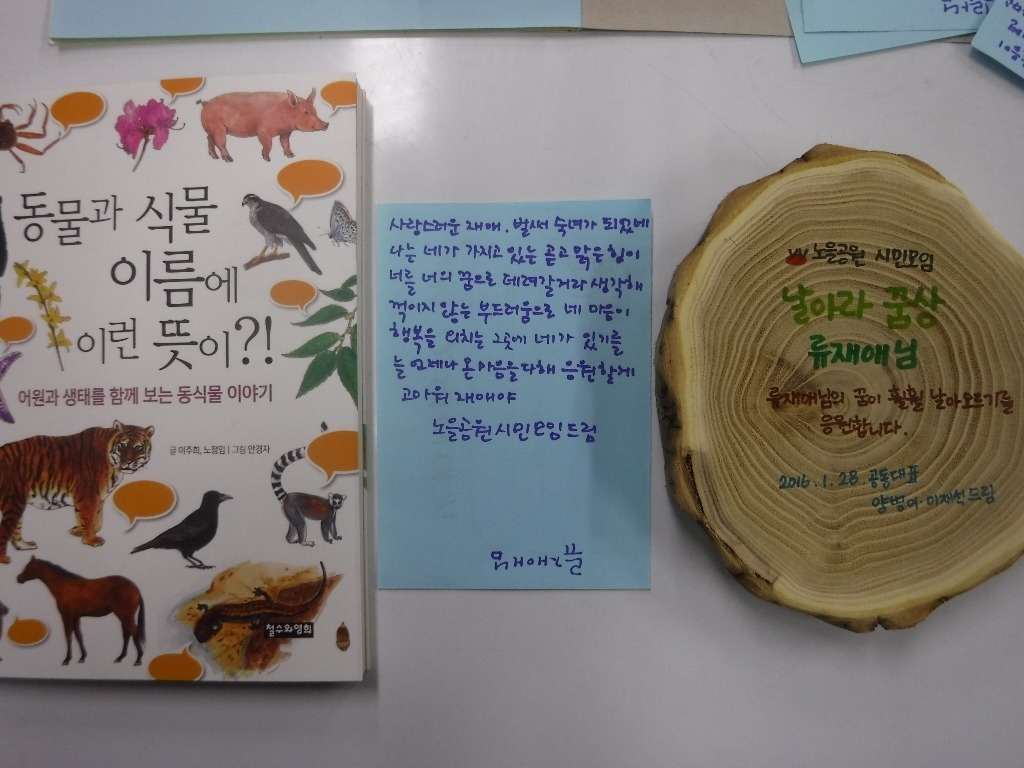 동물과 식물
이름에
이런 뜻이?!
어원과 생태를 함께 보는 동식물 이야기
글 이주희, 노정임 | 그림 안경자
철수와영희
사랑스러운 재애. 벌써 숙녀가 되었네
나는 네가 가지고 있는 곧고 맑은 힘이
너를 너의 꿈으로 데려갈거라 생각해
꺾이지 않는 부드러움으로 네 마음이
행복을 외치는 그곳에 네가 있기를
늘 언제나 온 마음을 다해 응원할게
고마워 재애야
노을공원시민모임 드림
노을공원 시민모임
날아라 꿈상
류재애님
류재애님의 꿈이 훨훨 날아오르기를
응원합니다.
2016. 1. 28 공동대표
이재석 드림